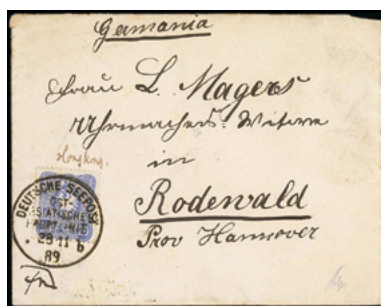 Germania
Frau L. Magers
Uhrmachers Witwe
in
Hongkong.
Rodewald
Prov Hannover
DEUTSCHE SEEPOST
OST-
ASIATISCHE
HAUPTLINIE
29 11 b
89